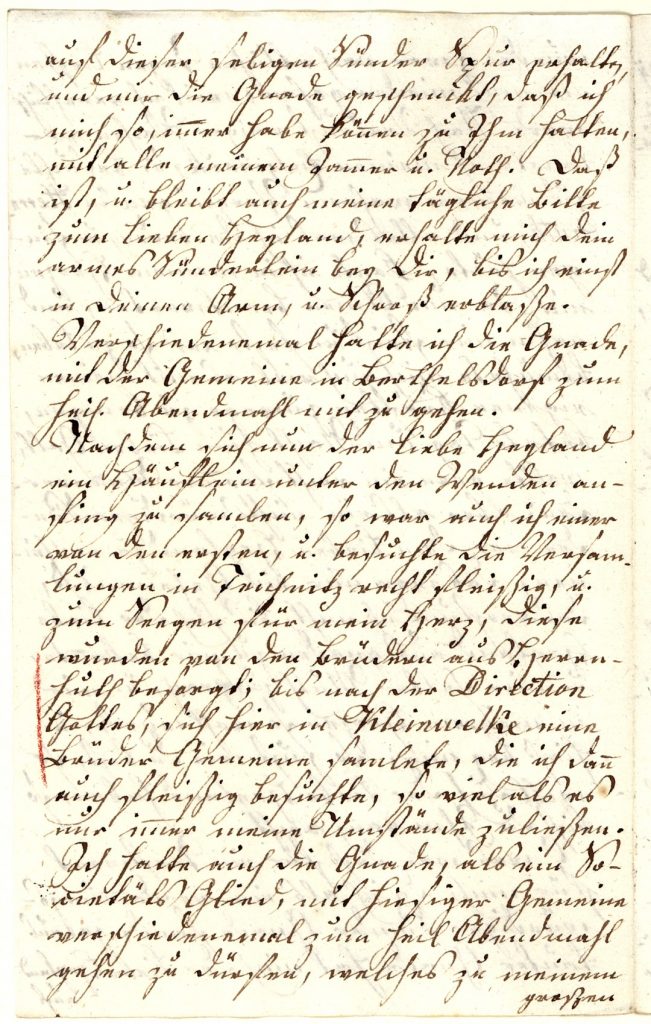 auf dieser seligen Sünder Spur erhalten,
und mir die Gnade geschenkt, daß ich
mich so, immer habe können zu Ihm halten,
mit alle meinem Jam̅er u. Noth. Daß
ist, u. bleibt auch meine tägliche Bitte
zum lieben Heyland, erhalte mich dein
armes Sünderlein bey Dir, bis ich einst
in Deinen Arm, u. Schooß erblaße.
Verschiedenemal hatte ich die Gnade,
mit der Gemeine in Berthelsdorf zum
heil. Abendmahl mit zu gehen.
Nachdem sich nun der liebe Heyland
ein Häuflein unter den Wenden an-
fing zu samlen, so war auch ich einer
von den ersten, u. besuchte die Versam-
lungen in Teichnitz recht fleißig, u.
zum Seegen für mein Herz, diese
wurden von den Brüdern aus Herrn-
huth besorgt; bis nach der Direction
Gottes, sich hier in Kleinwelke eine
Brüder Gemeine samlete, die ich dan̅
auch fleißig besuchte, so viel als es
nur im̅er meine Umstände zuließen.
Ich hatte auch die Gnade, als ein So-
cietäts Glied, mit hiesiger Gemeine
verschiedenemal zum heil Abendmahl
gehen zu dürfen, welches zu meinem
großen